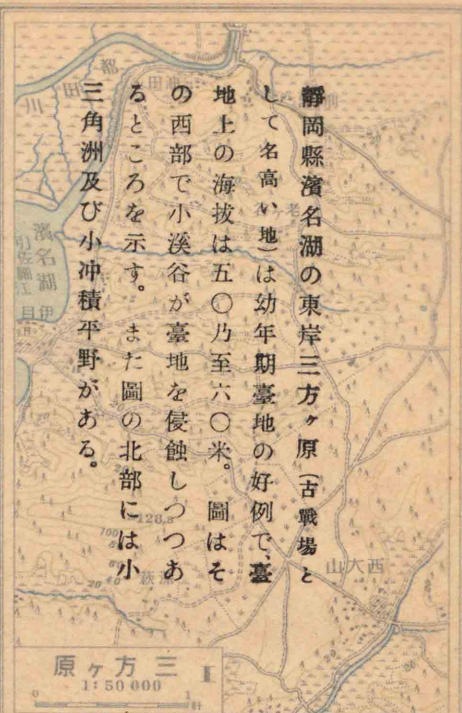 靜岡縣濱名湖の東岸三方ヶ原(古戰場と
して名高い地)は幼年期臺地の好例で、臺
地上の海拔は五〇乃至六〇米。圖はそ
の西部で小溪谷が臺地を侵蝕しつつあ
るところを示す。また圖の北部には小
三角洲及び小冲積平野がある。
都田川
濱名湖
引佐細江
伊目
西大山
128.3
100
20 40
20
三方ヶ原
1:50 000
0 1
I